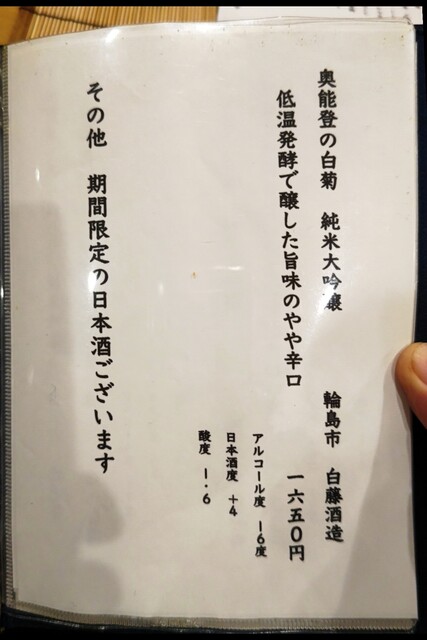 奥能登の白菊　純米大吟醸　輪島市　白藤酒造
低温発酵で醸した旨味のやや辛口　一六五〇円
アルコール度　16度
日本酒度　+4
酸度　1.6
その他　期間限定の日本酒ございます